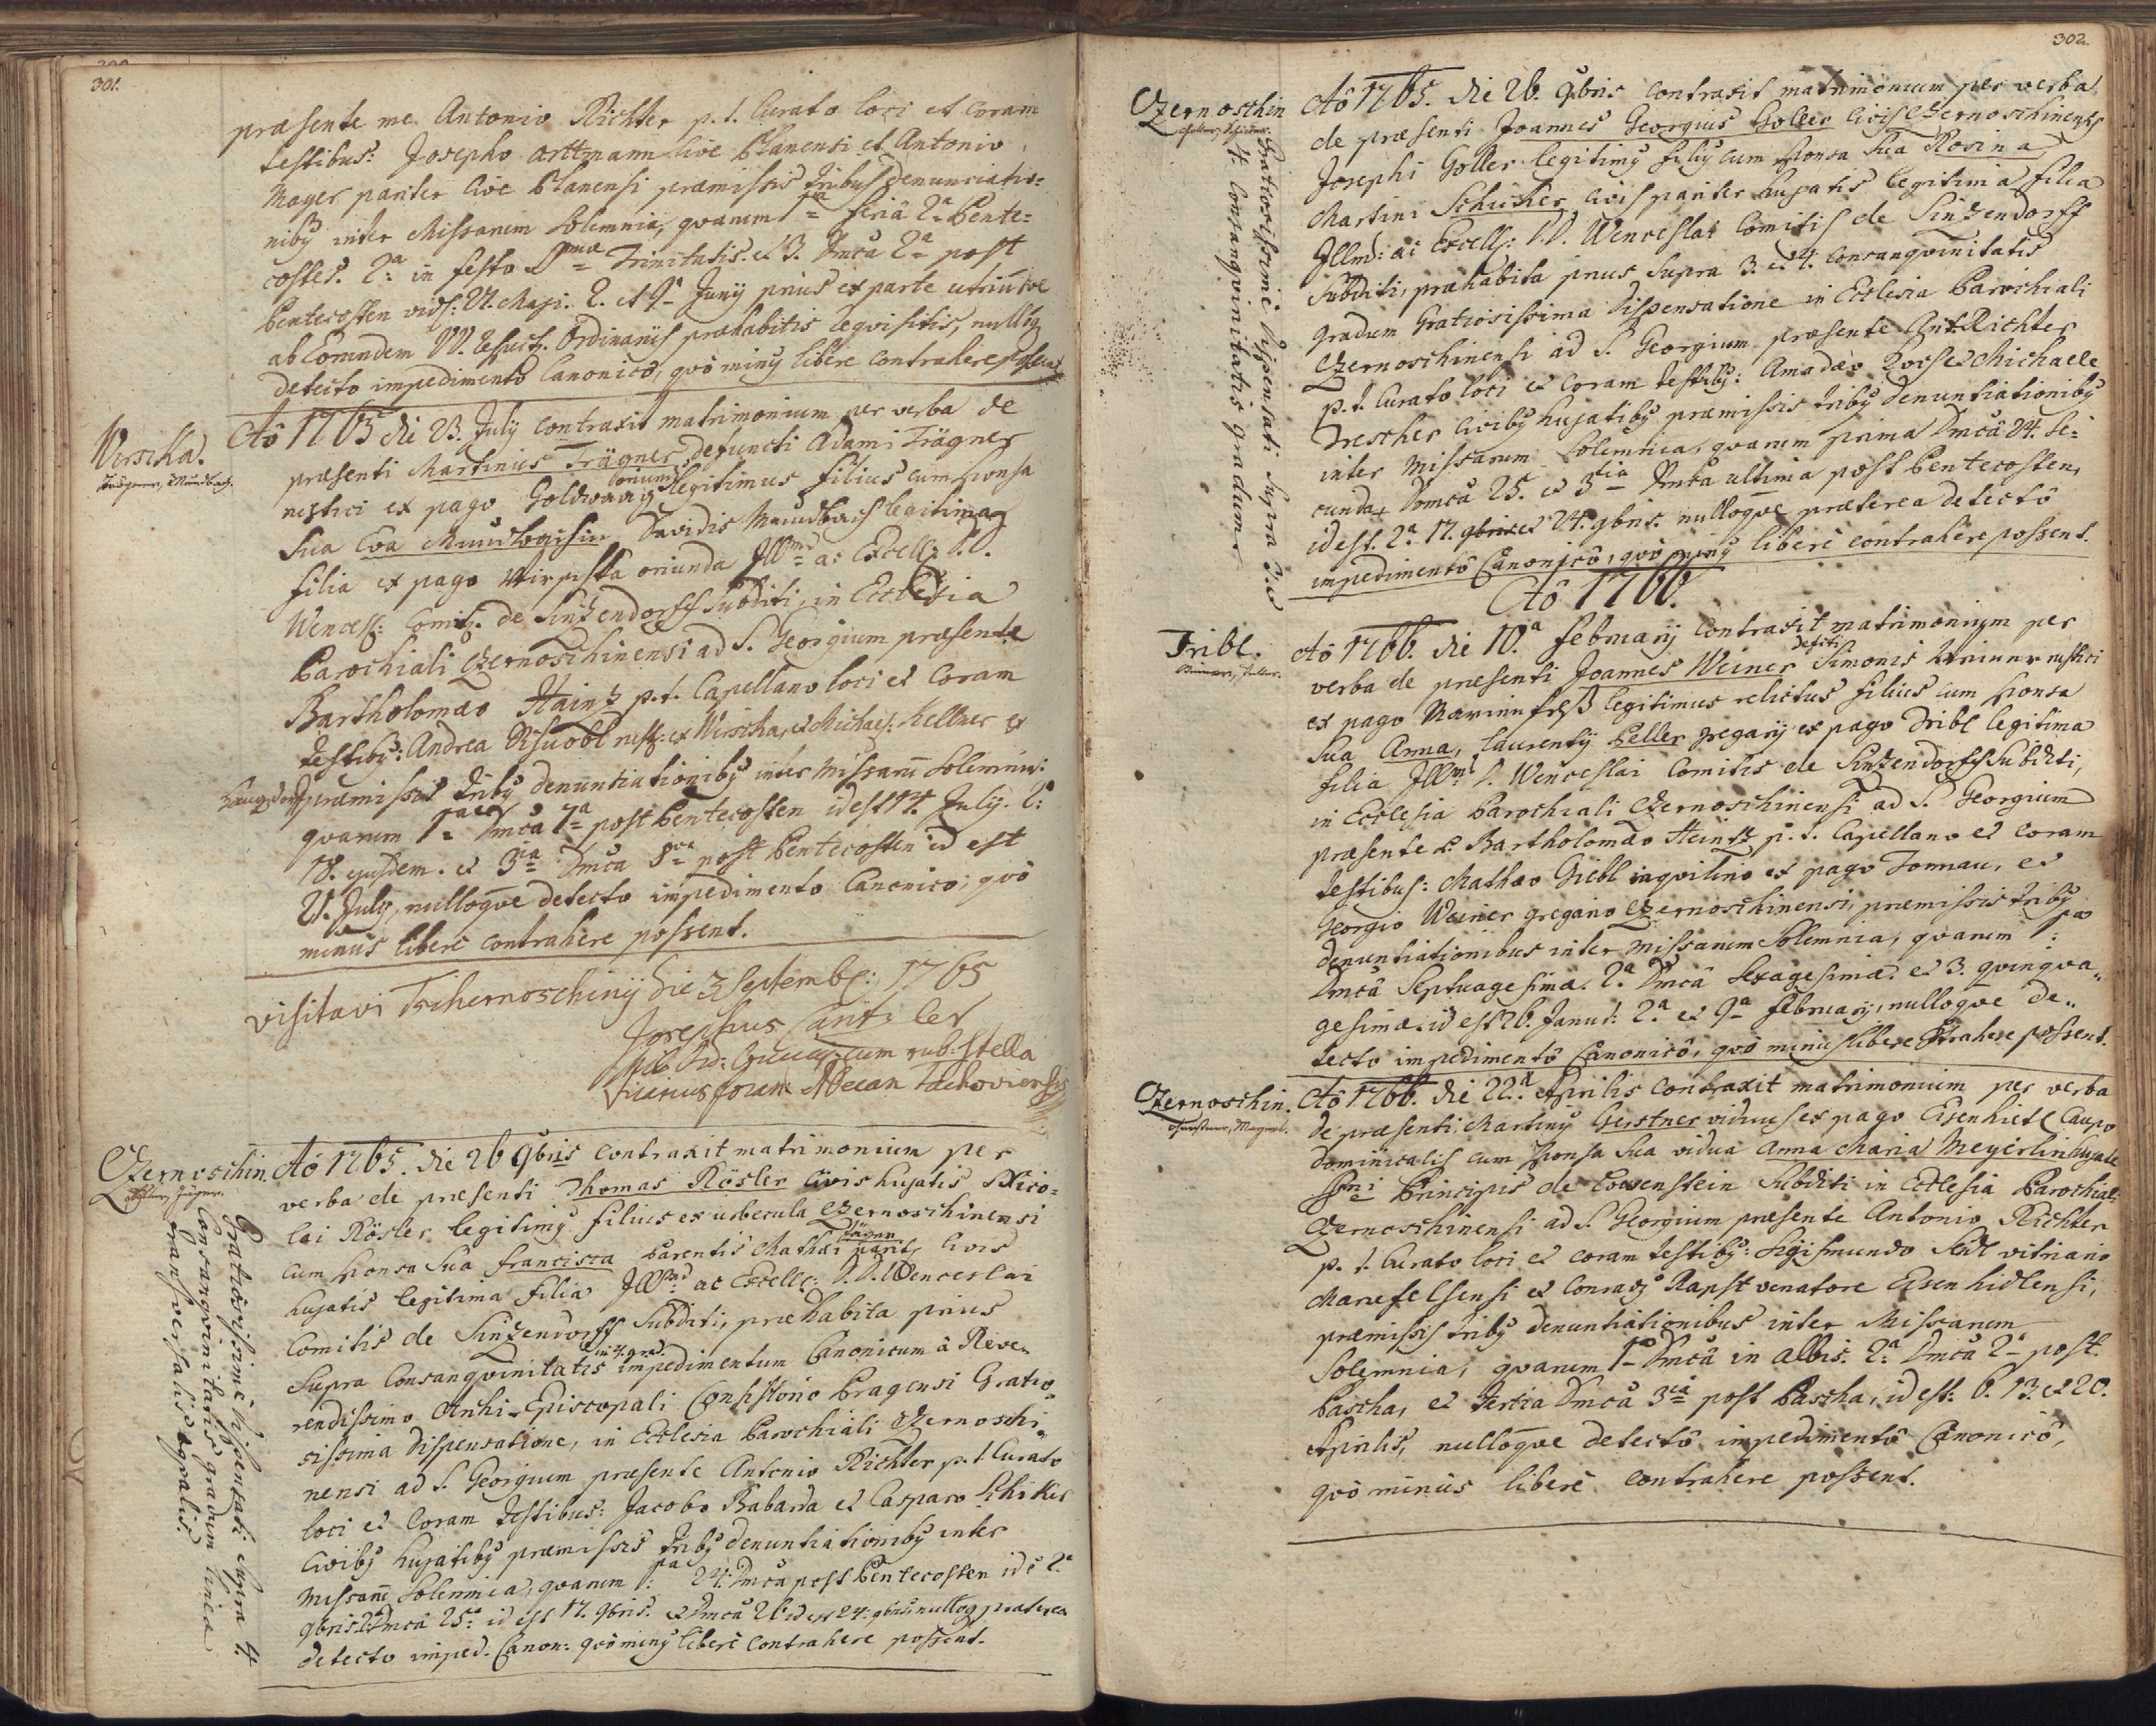 301.
præsente me Antonio Richter p. t. Curato loci et coram
testibus: Josepho Arttmann cive Planensi et Antonio
Mayer pariter cive Planensi præmissis tribus denunciatio=
niby inter Missarum Solemnia, quarum 1ma feria 2a Pente=
costes. 2a in festo SSmæ Trinitatis. et 3. Dmca 2a post
Pentecosten vid: 27. Maji. 2. et 9a Junÿ prius ex parte utriusqve
ab Eorundem DD. ordinarÿs præhabitis reqvisitis, nullo
detecto impedimentô Canonicô, qvô miny libere contrahere possent.
Wirscha.
Trägner, Mundbach.
Aô 1765 die 23. Julÿ contraxit matrimonium per verba de
præsenti Martinus Trägner, defuncti Adami Trägner
rustici ex pago Goldwaag legitimus filius cum sponsa
Sua Eva Mundbachin Davidis Mundbach legitima
filia ex pago Wirscha oriunda Illmi ac Excell: D.D.
Wencesl: Comit. de Sintzendorff Subditi, in Ecclesia
Parochiali Czernoschinensi ad S. Georgium præsente
Bartholomæo Haintz p. t. Capellano loci et coram
testiby: Andrea rust: ex Wirscha, et Michael: Kellner ex
præmissis triby denuntiationiby inter Missarū Solemnia:
quarum 1ma Dmca 7a post Pentecosten id est 14. July. 2:
18. ejusdem. et 3ia Dmca 8va post Pentecosten id est
21. July, nulloqve detecto impedimento Canonico, qvô
minus liberè contrahere possent.
visitavi Tschernoschinÿ die 3 Septembr: 1765
Josephus
cum rub: stella
Vicarius foran: Decan Tachoviensis
Czernoschin.
Rösler, Jäger.
Gratiosissimè dispensati supra 4.
Consangvinitatis gradum linea
transversalis æqvalis.
Aô 1765. die 26 9bris contraxit matrimonium per
verba de præsenti Thomas Rösler civis hujatis Nico=
lai Rösler legitimy filius ex urbecula Czernoschinensi
cum sponsa Sua Francisca parentis Mathæi Jäger pariter civis
hujatis legitima filia Illmi ac Excell: D.D. Wenceslai
Comitis de Sintzendorff Subditi, præhabita prius
Supra Consangvinitatis in 4. grad: impedimentum Canonicum à Reve=
rendissimo Archi-Episcopali Consistorio Pragensi Gratio=
sissima dispensatione, in Ecclesia Parochiali Czernoschi=
nensi ad S. Georgium præsente Antonio Richter p. t. Curato
loci et coram testibus: Jacobo Babarda et Casparo Schicker
civiby hujatiby præmissis triby denuntiationiby inter
Missarū Solemnia, quarum 1ma 24. Dmca post Pentecosten id ê
9bris. 2. Dmca 25a id est 17. 9bris. et Dmca 26 id est 24. 9bris nulloq præterea
detecto imped. Canon: qvô miny liberè contrahere possent.
302.
Czernoschin
Goller, Schicker.
Gratiosissimè dispensati supra 3. et
4. Consangvinitatis gradum.
Aô 1765. die 26. 9bris contraxit matrimonium per verba
de præsenti Joannes Georgius Goller civis Czernoschinensis
Josephi Goller legitimy filiy cum sponsa Sua Rosina,
Martini Schicker civis pariter hujatis legitima filia
Illmi ac Excell: D.D. Wenceslai Comitis de Sintzendorff
Subditi, præhabita prius supra 3. et 4. consangvinitatis
gradum Gratiosissima dispensatione in Ecclesia Parochiali
Czernoschinensi ad S. Georgium præsente Ant. Richter
p. t. Curato loci et coram testiby: Amadæo et Michaele
Trescher civiby hujatiby præmissis triby denuntiationiby
inter Missarum Solemnia, quarum prima Dmcâ 24. se=
cunda Domcâ 25. et 3tia Dmca ultima post Pentecosten,
id est. 2a 17. 9bris et 24. 9bris. nulloqve præterea detectô
impedimentô Canonicô, qvô miny liberè contrahere possent.
Aô 1766.
Tribl.
Weiner, Peller.
Aô 1766. die 10.a Februarÿ contraxit matrimonium per
verba de præsenti Joannes Weiner defcti Simonis Weiner rustici
ex pago legitimus relictus filius cum sponsa
Sua Anna, Laurentÿ Peller gregarÿ ex pago Tribl legitima
filia Illmi D. Wenceslai Comitis de Sintzendorff Subditi,
in Ecclesia Parochiali Czernoschinensi ad S. Georgium
præsente P. Bartholomæo Heintz p. t. Capellano et coram
testibus: Mathæo Giebl inqvilino ex pago Tonnau, et
Georgio Weiner gregario Czernoschinensi, præmissis triby
denuntiationibus inter Missarum Solemnia, quarum 1ma
Dmcâ Septuagesimæ. 2a Dmcâ Sexagesimæ. et 3. qvinqva=
gesimæ. id est 26. Januar: 2.a et 9a Februarÿ, nulloqve de=
tecto impedimentô Canonicô, qvô minus libere cōtrahere possent.
Czernoschin.
Gerstner, Mayerl.
Aô 1766. die 22.a Aprilis contraxit matrimonium per verba
de præsenti, Martiny Gerstner viduus ex pago Eisenhietl Caupo
Dominicalis cum sponsa Sua vidua Anna Maria Meyerlin hujate
Principis de Löwenstein Subditi in Ecclesia Parochiali
Czernoschinensi ad S. Georgium præsente Antonio Richter
p. t. Curato loci et coram testiby: Sigismundo Seidl vitriario
Mariefelsensi et Conrado Rapst venatore Eisenhidlensi,
præmissis triby denuntiationibus inter Missarum
Solemnia, quarum 1ma Dmcâ in albis. 2a Dmcâ 2a post
Pascha, et tertia Dmcâ 3ia post Pascha, id est: 6. 13. et 20.
Aprilis, nulloqve detectô impedimentô Canonicô,
qvô minùs liberè contrahere possent.